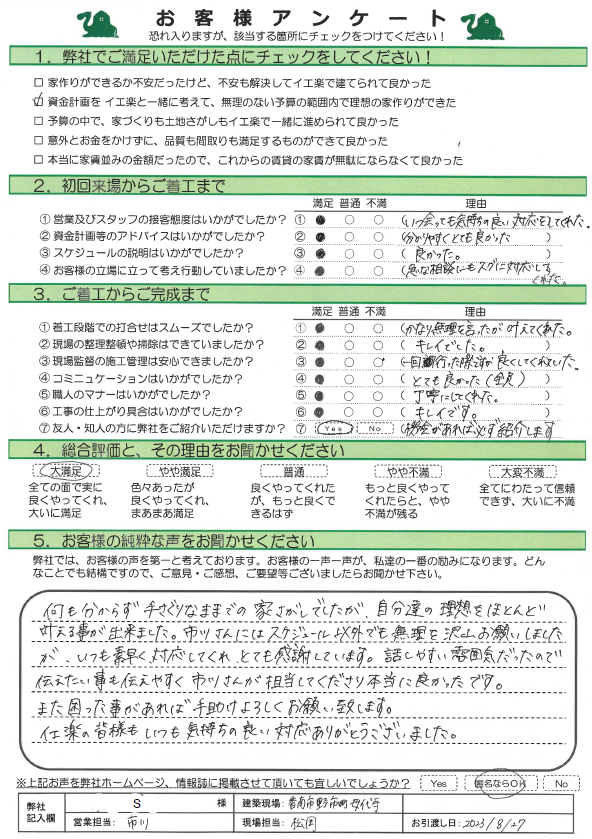 お客様アンケート
恐れ入りますが、該当する箇所にチェックをつけてください！
1．弊社でご満足いただけた点にチェックをしてください！
□ 家作りができるか不安だったけど、不安も解決してイエ楽で建てられて良かった
☑ 資金計画を イエ楽と一緒に考えて、無理のない予算の範囲内で理想の家作りができた
□ 予算の中で、家づくりも土地さがしもイエ楽で一緒に進められて良かった
□ 意外とお金をかけずに、品質も間取りも満足するものができて良かった
□ 本当に家賃並みの金額だったので、これからの賃貸の家賃が無駄にならなくて良かった
2．初回来場からご着工まで
満足 普通 不満 理由
① 営業及びスタッフの接客態度はいかがでしたか？ ① ● ○ ○ (いつ会っても気持の良い対応をしてくれた。
② 資金計画等のアドバイスはいかがでしたか？ ② ● ○ ○ (分かりやすくとても良かった )
③ スケジュールの説明はいかがでしたか？ ③ ● ○ ○ ( 良かった。 )
④ お客様の立場に立って考え行動していましたか？ ④ ● ○ ○ (急な相談にもスグに対応して
くれた。
3．ご着工からご完成まで
満足 普通 不満 理由
① 着工段階での打合せはスムーズでしたか？ ① ● ○ ○ (かなり無理を言ったが叶えてくれた。
② 現場の整理整頓や掃除はできていましたか？ ② ● ○ ○ ( キレイでした。 )
③ 現場監督の施工管理は安心できましたか？ ③ ● ○ ○ (一回行った際対が良くしてくれていた.
④ コミニュケーションはいかがでしたか？ ④ ● ○ ○ ( とても良かった(全員) )
⑤ 職人のマナーはいかがでしたか？ ⑤ ● ○ ○ ( 丁寧にしてくれた。 )
⑥ 工事の仕上がり具合はいかがでしたか？ ⑥ ● ○ ○ ( キレイです。 )
⑦ 友人・知人の方に弊社をご紹介いただけますか？ ⑦ Yes No (機会があれば必ず紹介します
4．総合評価と、その理由をお聞かせください
大満足 やや満足 普通 やや不満 大変不満
全ての面で実に 色々あったが 良くやってくれた もっと良くやって 全てにわたって信頼
良くやってくれ、 良くやってくれ、 が、もっと良くで くれたらと、やや できず、大いに不満
大いに満足 まあまあ満足 きるはず 不満が残る
5．お客様の純粋な声をお聞かせください
弊社では、お客様の声を第一と考えております。お客様の一声一声が、私達の一番の励みになります。どん
なことでも結構ですので、ご意見・ご感想、ご要望等ございましたらお聞かせ下さい。
何も分からず手さぐりなままでの家さがしでしたが、自分達の理想をほとんど
叶える事が出来ました。市川さんにはスケジュール以外でも無理を沢山お願いしました
が、いつも素早く対応してくれ、とても感謝しています。話しやすい雰囲気だったので
伝えたい事も伝えやすく市川さんが担当してくださり本当に良かったです。
また困った事があれば手助けよろしくお願い致します。
イエ楽の皆様もいつも気持ちの良い対応ありがとうございました。
※上記お声を弊社ホームページ、情報誌に掲載させて頂いても宜しいでしょうか？ Yes 匿名ならOK No
弊社
記入欄
S 様 建築現場: 香南市野市町
営業担当: 市川 現場担当: 松田 お引渡し日: 2023/8/27